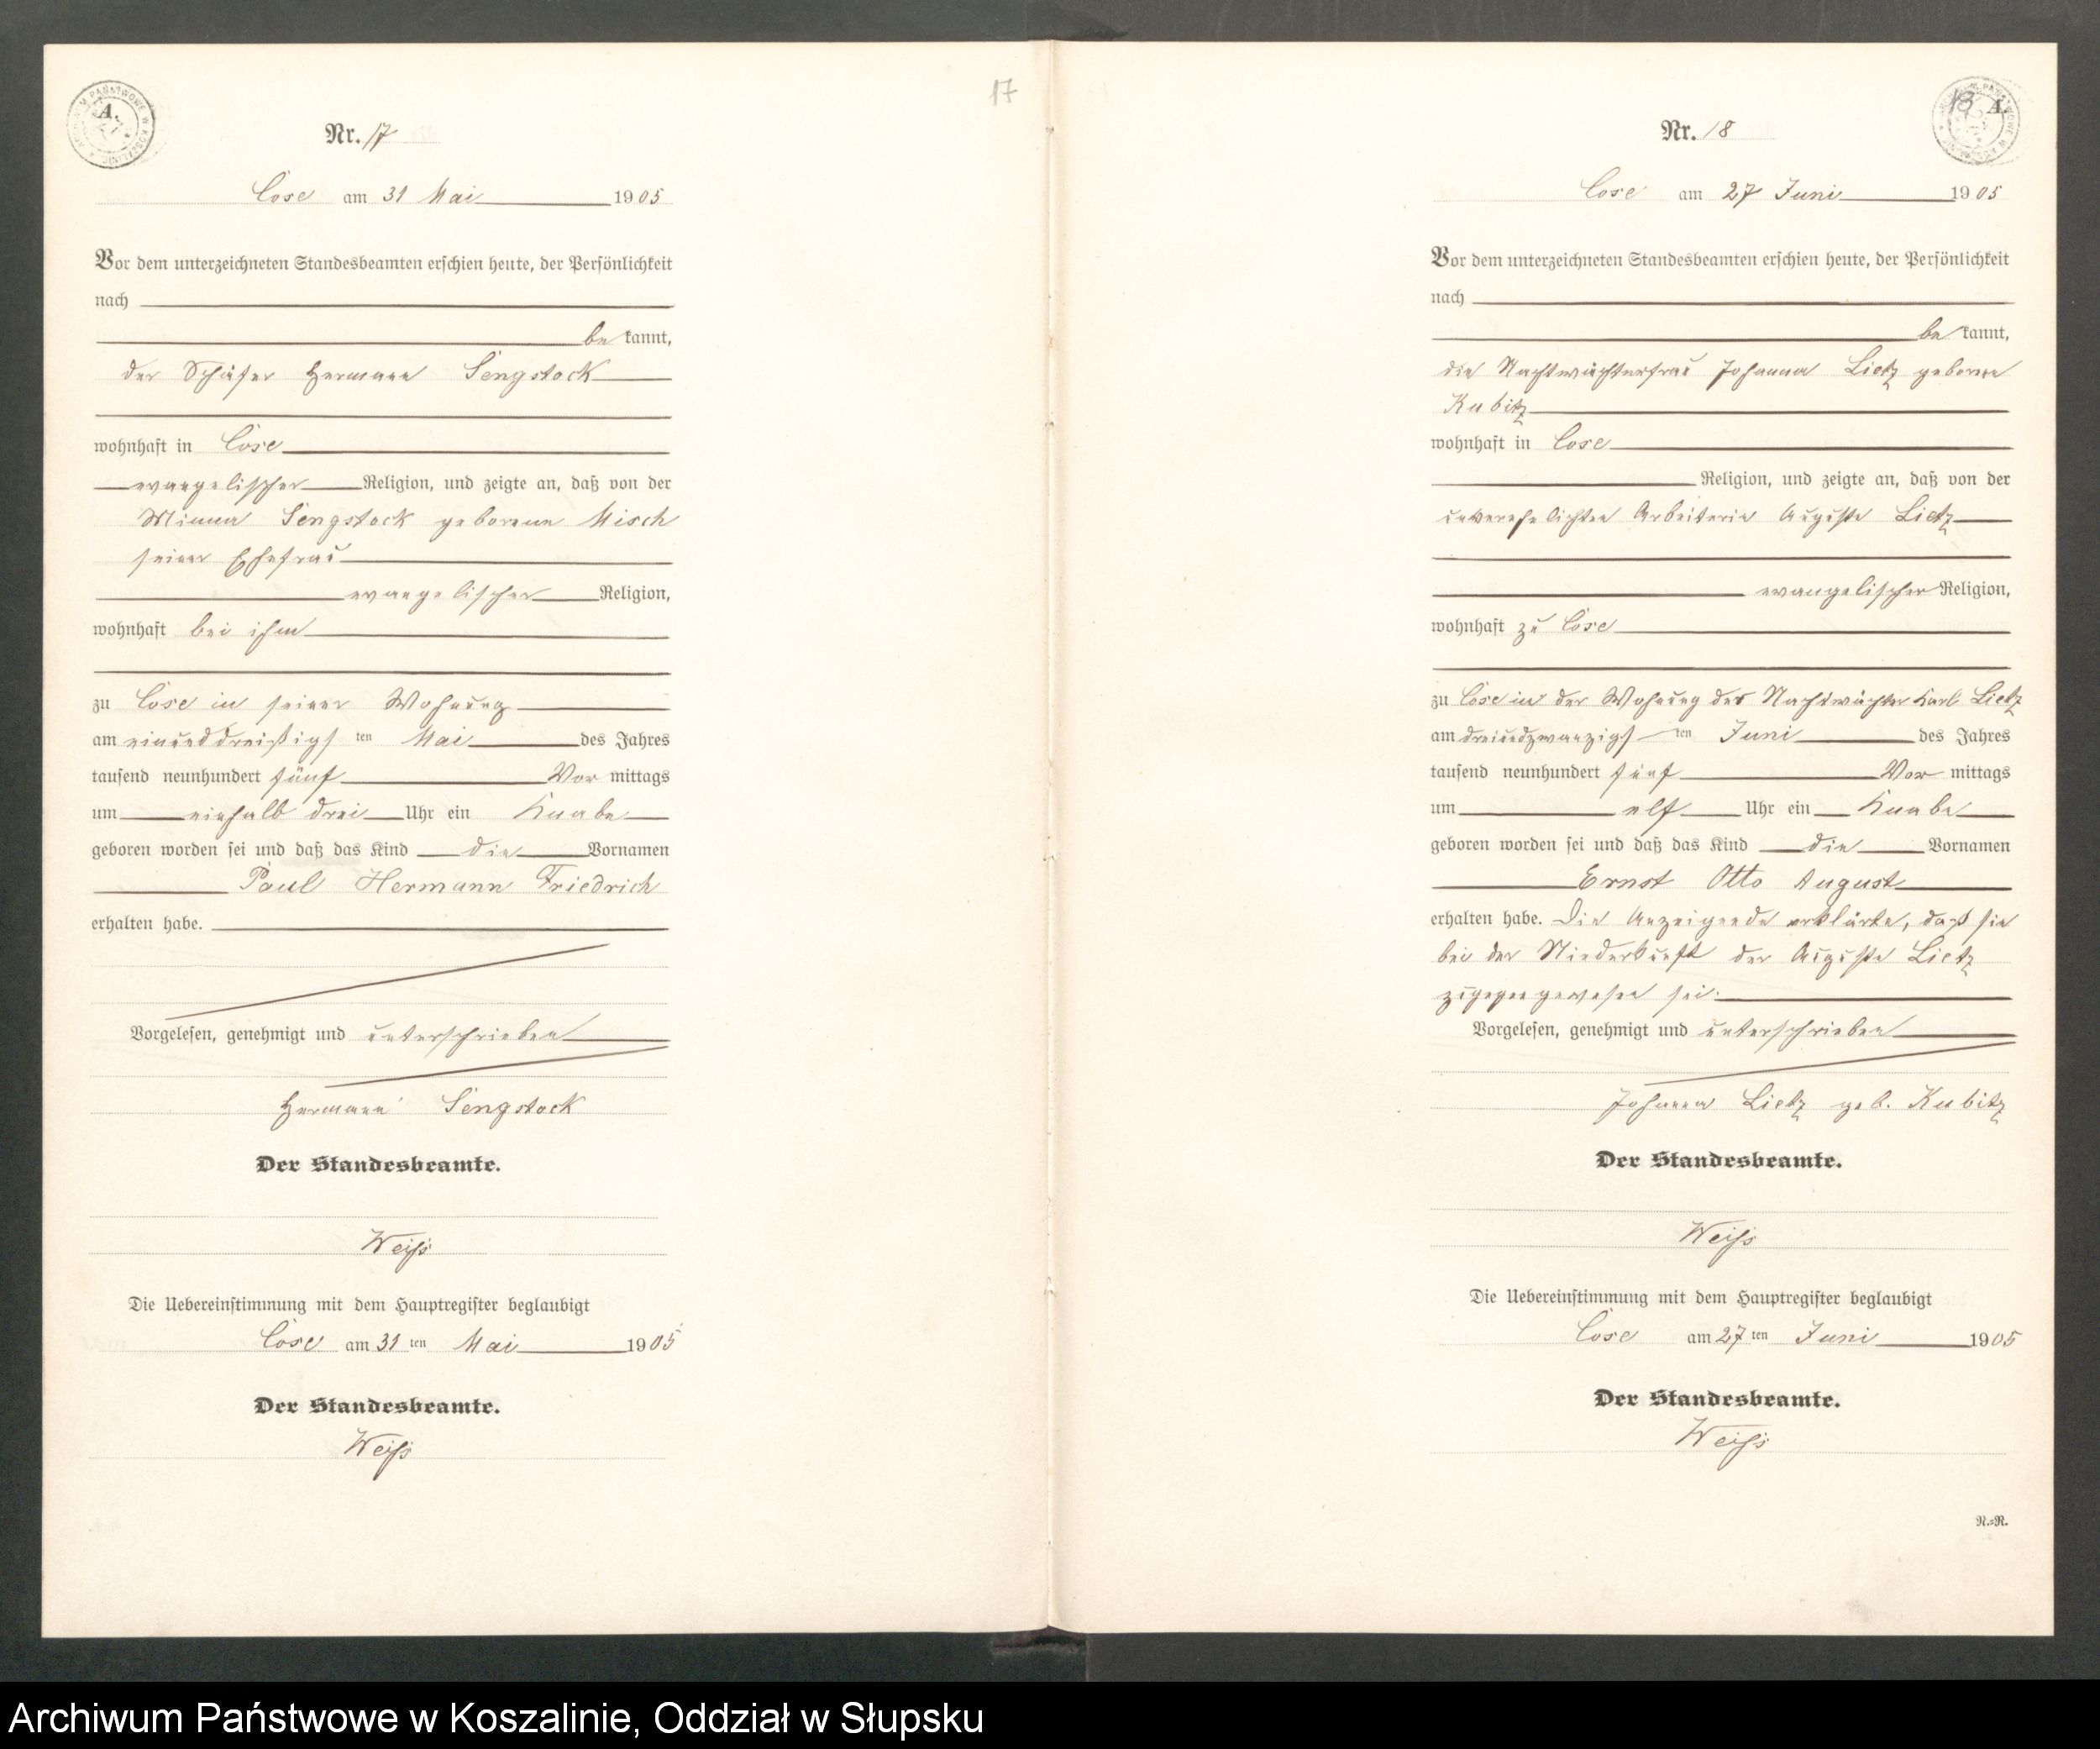 17
A.
Nr. 17
Cose am 31 Mai 1905
Vor dem unterzeichneten Standesbeamten erschien heute, der Persönlichkeit
nach
be kannt,
der Schäfer Hermann Sengstock
wohnhaft in Cose
evangelischer Religion, und zeigte an, daß von der
Minna Sengstock geborene Misch
seiner Ehefrau
evangelischer Religion,
wohnhaft bei ihm
zu Cose in seiner Wohnung
am einunddreißigs ten Mai des Jahres
tausend neunhundert fünf Vor mittags
um einhalb drei Uhr ein Knabe
geboren worden sei und daß das Kind die Vornamen
Paul Hermann Friedrich
erhalten habe.
Vorgelesen, genehmigt und unterschrieben
Hermann Sengstock
Der Standesbeamte.
Weiß
Die Uebereinstimmung mit dem Hauptregister beglaubigt
Cose am 31 ten Mai 1905
Der Standesbeamte.
Weiß
18 A.
Nr. 18
Cose am 27 Juni 1905
Vor dem unterzeichneten Standesbeamten erschien heute, der Persönlichkeit
nach
be kannt,
die Nachtwächterfrau Johanna Lietz geborene
Kubitz
wohnhaft in Cose
Religion, und zeigte an, daß von der
unverehelichten Arbeiterin Auguste Lietz
evangelischer Religion,
wohnhaft zu Cose
zu Cose in der Wohnung des Nachtwächter Karl Lietz
am dreiundzwanzigs ten Juni des Jahres
tausend neunhundert fünf Vor mittags
um elf Uhr ein Knabe
geboren worden sei und daß das Kind die Vornamen
Ernst Otto August
erhalten habe. Die Anzeigende erklärte, daß sie
bei der Niederkunft der Auguste Lietz
zugegen gewesen sei.
Vorgelesen, genehmigt und unterschrieben
Johanna Lietz geb. Kubitz
Der Standesbeamte.
Weiß
Die Uebereinstimmung mit dem Hauptregister beglaubigt
Cose am 27 ten Juni 1905
Der Standesbeamte.
Weiß
N.=R.
Archiwum Państwowe w Koszalinie, Oddział w Słupsku